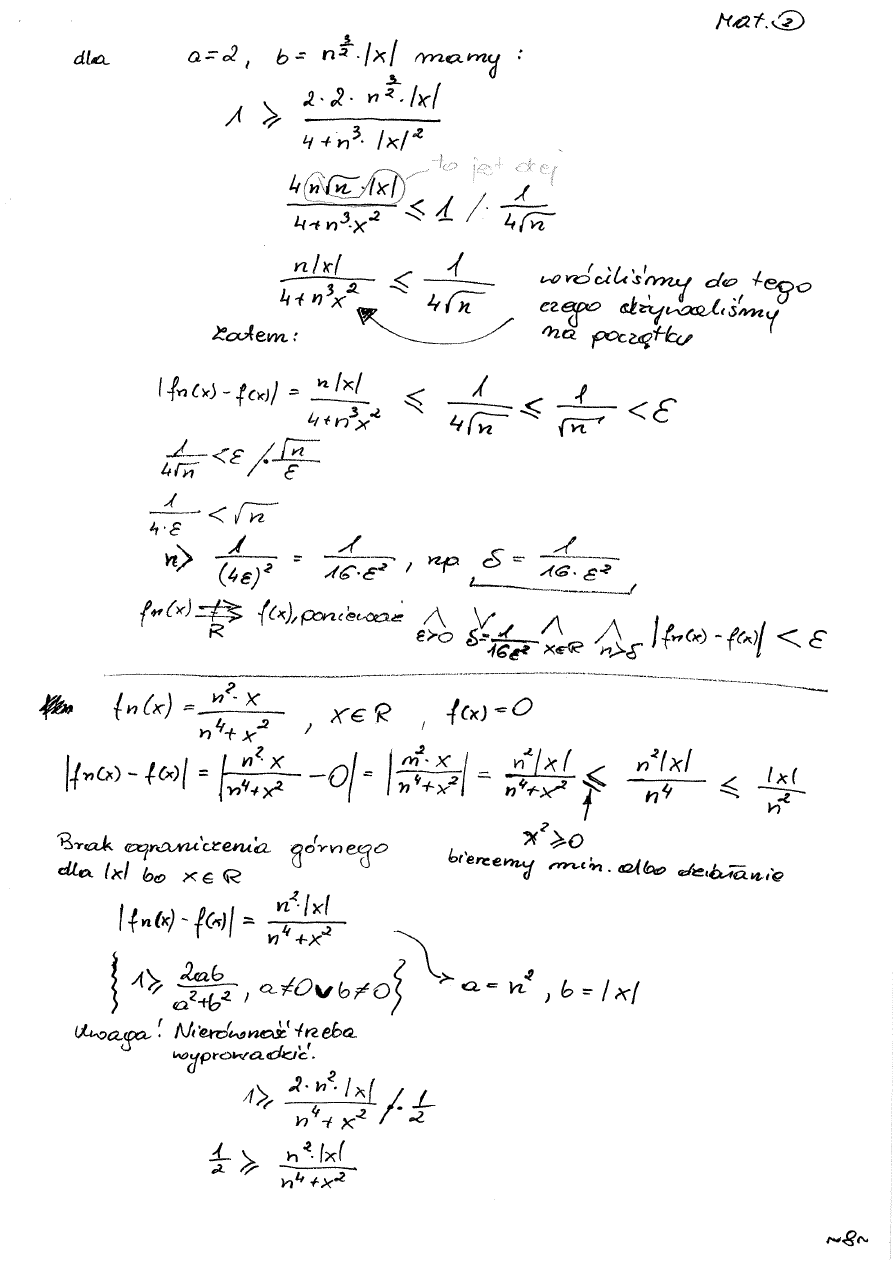 Mat. ②
dla a=2, b= n^{3/2}·|x| mamy :
1 ≥ \frac{2·2· n^{3/2}·|x|}{4+n^3· |x|^2}
to jest
\frac{4 n√n ·|x|}{4+n^3·x^2} ≤ 1 /· \frac{1}{4√n}
\frac{n|x|}{4+n^3x^2} ≤ \frac{1}{4√n}
wróciliśmy do tego
czego używaliśmy
na początku
Zatem:
|fn(x)-f(x)| = \frac{n|x|}{4+n^3x^2} ≤ \frac{1}{4√n} ≤ \frac{1}{√n} < ε
\frac{1}{4√n} < ε /· \frac{√n}{ε}
\frac{1}{4·ε} < √n
n> \frac{1}{(4ε)^2} = \frac{1}{16·ε^2} , np δ = \frac{1}{16·ε^2}
fn(x) ⇉_R f(x), ponieważ ⋀_{ε>0} ⋁_{δ=\frac{1}{16ε^2}} ⋀_{x∈R} ⋀_{n>δ} |fn(x)-f(x)| < ε
fn(x) = \frac{n^2·x}{n^4+x^2} , x∈R , f(x)=0
|fn(x)-f(x)| = |\frac{n^2·x}{n^4+x^2} -0| = |\frac{n^2·x}{n^4+x^2}| = \frac{n^2|x|}{n^4+x^2} ≤ \frac{n^2|x|}{n^4} ≤ \frac{|x|}{n^2}
x^2≥0
bierzemy min. albo działanie
Brak ograniczenia górnego
dla |x| bo x∈R
|fn(x)-f(x)| = \frac{n^2·|x|}{n^4+x^2}
{ 1≥ \frac{2ab}{a^2+b^2} , a≠0 ∨ b≠0 } a = n^2 , b = |x|
Uwaga! Nierówność trzeba
wyprowadzić.
1≥ \frac{2·n^2·|x|}{n^4+x^2} /· \frac{1}{2}
\frac{1}{2} ≥ \frac{n^2·|x|}{n^4+x^2}
~8~